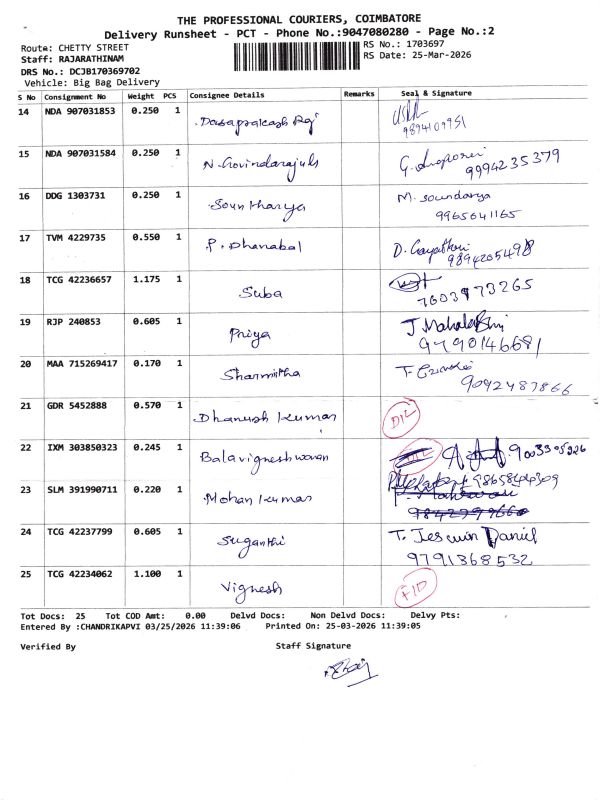 THE PROFESSIONAL COURIERS, COIMBATORE
Delivery Runsheet - PCT - Phone No.:9047080280 - Page No.:2
Route: CHETTY STREET
RS No.: 1703697
Staff: RAJARATHINAM
RS Date: 25-Mar-2026
DRS No.: DCJB170369702
Vehicle: Big Bag Delivery
S No Consignment No Weight PCS Consignee Details Remarks Seal & Signature
14 NDA 907031853 0.250 1 Dasaprakash Raj
9894109951
15 NDA 907031584 0.250 1 N. Govindarajulu G. 9994235379
16 DDG 1303731 0.250 1 Sountharya M. Soundarya
9965641165
17 TVM 4229735 0.550 1 P. Dhanabal D. Gayathri
9894205498
18 TCG 42236657 1.175 1 Suba
7603973265
19 RJP 240853 0.605 1 Priya J. Mahalakshmi
9790146681
20 MAA 715269417 0.170 1 Sharmitha T.
9092487866
21 GDR 5452888 0.570 1 Dhanush Kumar D/L
22 IXM 303850323 0.245 1 Balavigneshwaran 9003305226
23 SLM 391990711 0.220 1 Mohan Kumar 9865844309
24 TCG 42237799 0.605 1 Suganthi T. Jeswin Daniel
9791368532
25 TCG 42234062 1.100 1 Vignesh
Tot Docs: 25 Tot COD Amt: 0.00 Delvd Docs: Non Delvd Docs: Delvy Pts:
Entered By :CHANDRIKAPVI 03/25/2026 11:39:06 Printed On: 25-03-2026 11:39:05
Verified By Staff Signature